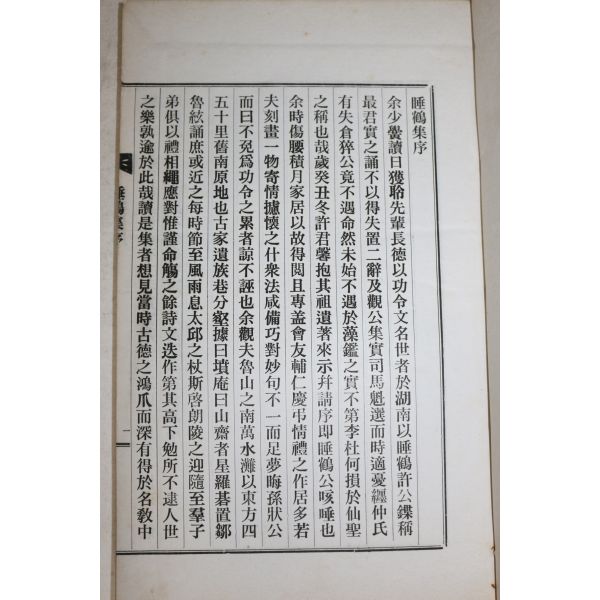 睡鶴集序
余少嘗讀日獲聆先輩長德以功令文名世者於湖南以睡鶴許公鏶稱
最君實之誦不以得失置二辭及觀公集實司馬魁選而時適憂纒仲氏
有失倉猝公竟不遇命然未始不遇於藻鑑之實不第李杜何損於仙聖
之稱也哉歲癸丑冬許君馨抱其祖遺著來示幷請序即睡鶴公咳唾也
余時傷腰積月家居以故得閱且專盖會友輔仁慶弔情禮之作居多若
夫刻畫一物寄情攄懷之什衆法咸備巧對妙句不一而足夢晦孫狀公
而曰不免爲功令之累者諒不誣也余觀夫魯山之南萬水灘以東方四
五十里舊南原地也古家遺族巷分壑據曰墳庵曰山齋者星羅碁置鄒
魯絃誦庶或近之每時節至風雨息太邱之杖斯啓朗陵之迎隨至羣子
弟俱以禮相繩應對惟謹命觴之餘詩文迭作第其高下勉所不逮人世
之樂孰逾於此哉讀是集者想見當時古德之鴻爪而深有得於名敎中
睡鶴集序
一